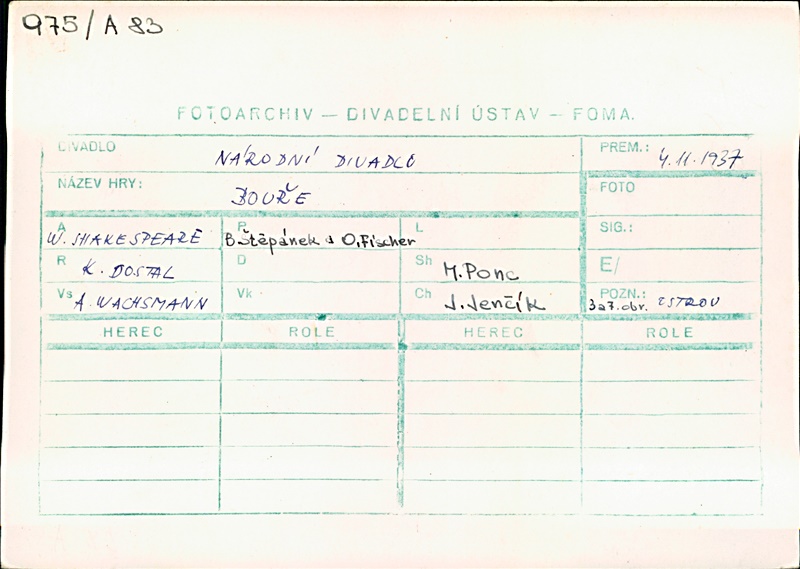 975/A 83
FOTOARCHIV — DIVADELNÍ ÚSTAV — FOMA.
DIVADLO NÁRODNÍ DIVADLO PREM.: 4.11.1937
NÁZEV HRY: BOUŘE FOTO
A W. SHAKESPEARE P B.Štěpánek a O.Fischer L SIG.:
R K. DOSTAL D Sh M.Ponc E/
Vs A. WACHSMANN Vk Ch J.Jenčík POZN.: 3a7.obr. OSTROV
HEREC ROLE HEREC ROLE